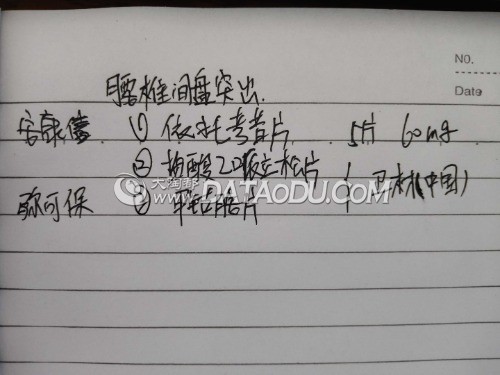 NO.
腰椎间盘突出.
Date
安康信 ① 依托考昔片 . 5片 60mg
② 酸乙哌立松片 卫材(中国)
大淘都 DATAODU.COM
弥可保 ③ 甲钴胺片